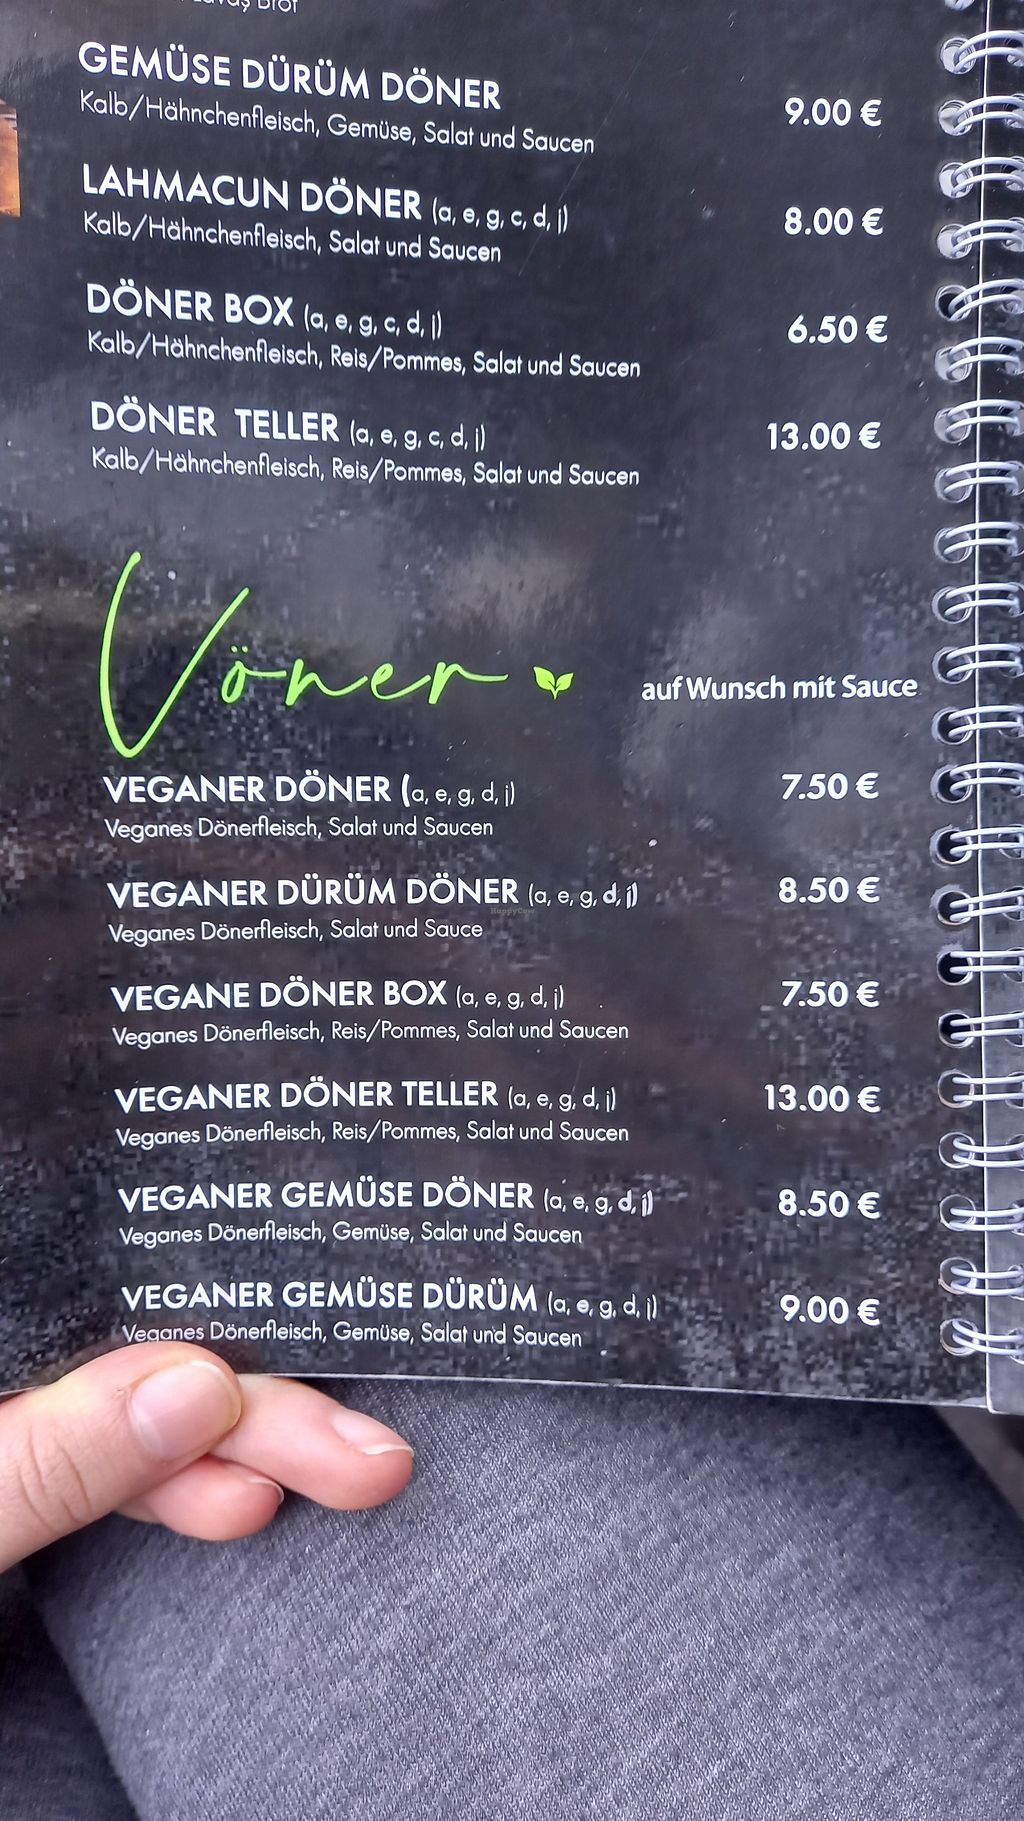 Brot
GEMÜSE DÜRÜM DÖNER
9.00 €
Kalb/Hähnchenfleisch, Gemüse, Salat und Saucen
LAHMACUN DÖNER (a, e, g, c, d, j)
8.00 €
Kalb/Hähnchenfleisch, Salat und Saucen
DÖNER BOX (a, e, g, c, d, j)
6.50 €
Kalb/Hähnchenfleisch, Reis/Pommes, Salat und Saucen
DÖNER TELLER (a, e, g, c, d, j)
13.00 €
Kalb/Hähnchenfleisch, Reis/Pommes, Salat und Saucen
Vöner
auf Wunsch mit Sauce
VEGANER DÖNER (a, e, g, d, j)
7.50 €
Veganes Dönerfleisch, Salat und Saucen
VEGANER DÜRÜM DÖNER (a, e, g, d, j)
8.50 €
HappyCow
Veganes Dönerfleisch, Salat und Sauce
VEGANE DÖNER BOX (a, e, g, d, j)
7.50 €
Veganes Dönerfleisch, Reis/Pommes, Salat und Saucen
VEGANER DÖNER TELLER (a, e, g, d, j)
13.00 €
Veganes Dönerfleisch, Reis/Pommes, Salat und Saucen
VEGANER GEMÜSE DÖNER (a, e, g, d, j)
8.50 €
Veganes Dönerfleisch, Gemüse, Salat und Saucen
VEGANER GEMÜSE DÜRÜM (a, e, g, d, j)
9.00 €
Veganes Dönerfleisch, Gemüse, Salat und Saucen